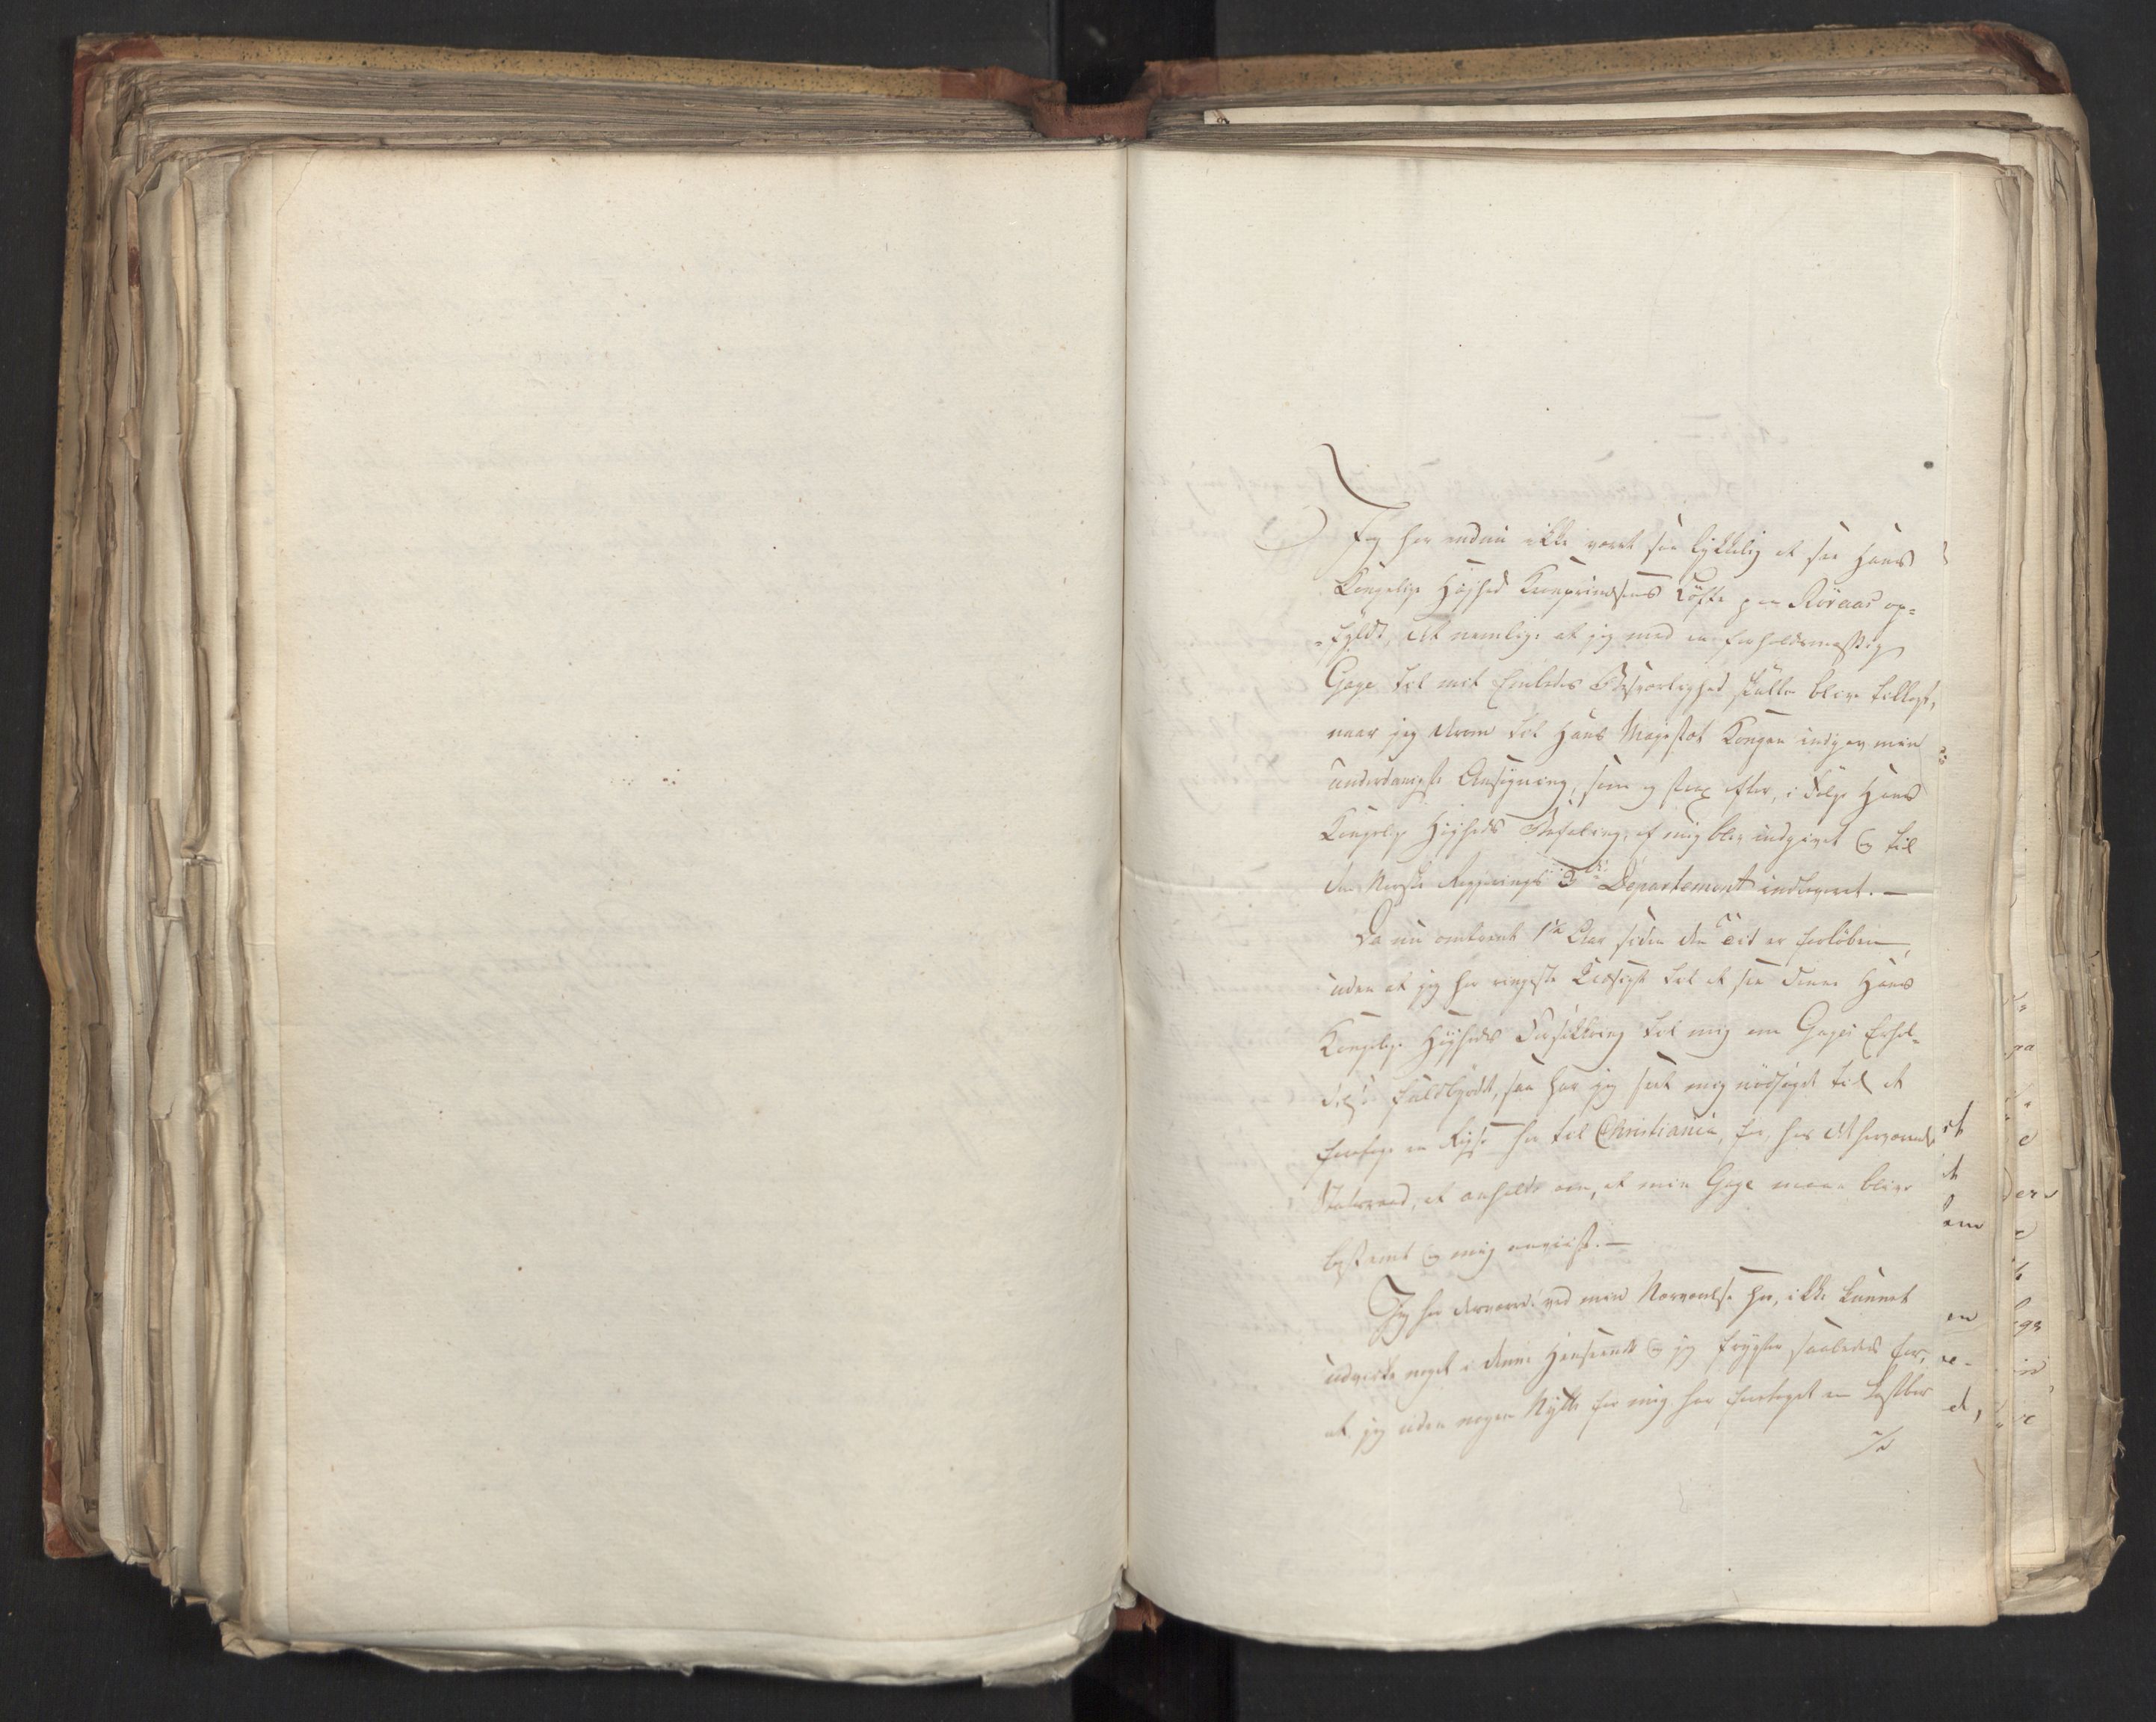 Jeg har endnu ikke været saa lykkelig at see Hans
Kongelige Højhed Kronprindsens Løfte paa Röraas op=
=fyldt, det nemlig: at jeg med en forholdsmæssig
Gage til mit Embedes Besværlighed skulle blive tillagt,
naar jeg derom til Hans Majestæt Kongen indgav min
underdanigste Ansøgning, som og strax efter, i Følge Hans
Kongelige Højheds Befaling, af mig blev indgivet og til
den Norske Regjerings 3die Departement indleveret. —
Da nu omtrent 1½ Aar siden den Tid er forløben,
uden at jeg har ringeste Udsigt til at see denne Hans
Kongelige Højheds Forsikkring til mig om Gages Erhol=
delse fuldbyrdet, saa har jeg seet mig nödsaget til at
foretage en Rejse her til Christiania, for, hos det herværende
Statsraad, at anholde om, at min Gage maae blive
bestemt og mig anviist. —
Jeg har desværre! ved min Nærværelse her, ikke kunnet
udvirke noget i denne Henseende og jeg frygter saaledes for,
at jeg uden nogen Nytte for mig har foretaget en kostbar